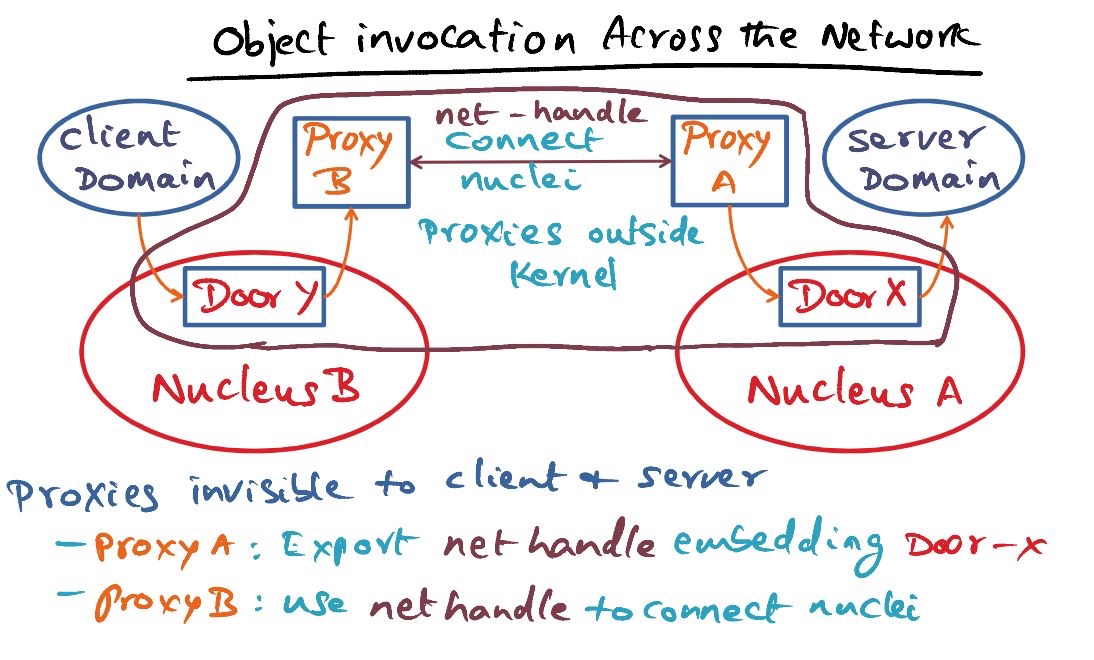 Object invocation Across the Network
client
Domain
Proxy
B
net-handle
connect
nuclei
Proxy
A
server
Domain
Proxies outside
Kernel
Door Y
Door X
Nucleus B
Nucleus A
Proxies invisible to client + server
- Proxy A : Export net handle embedding Door-x
- Proxy B : use net handle to connect nuclei